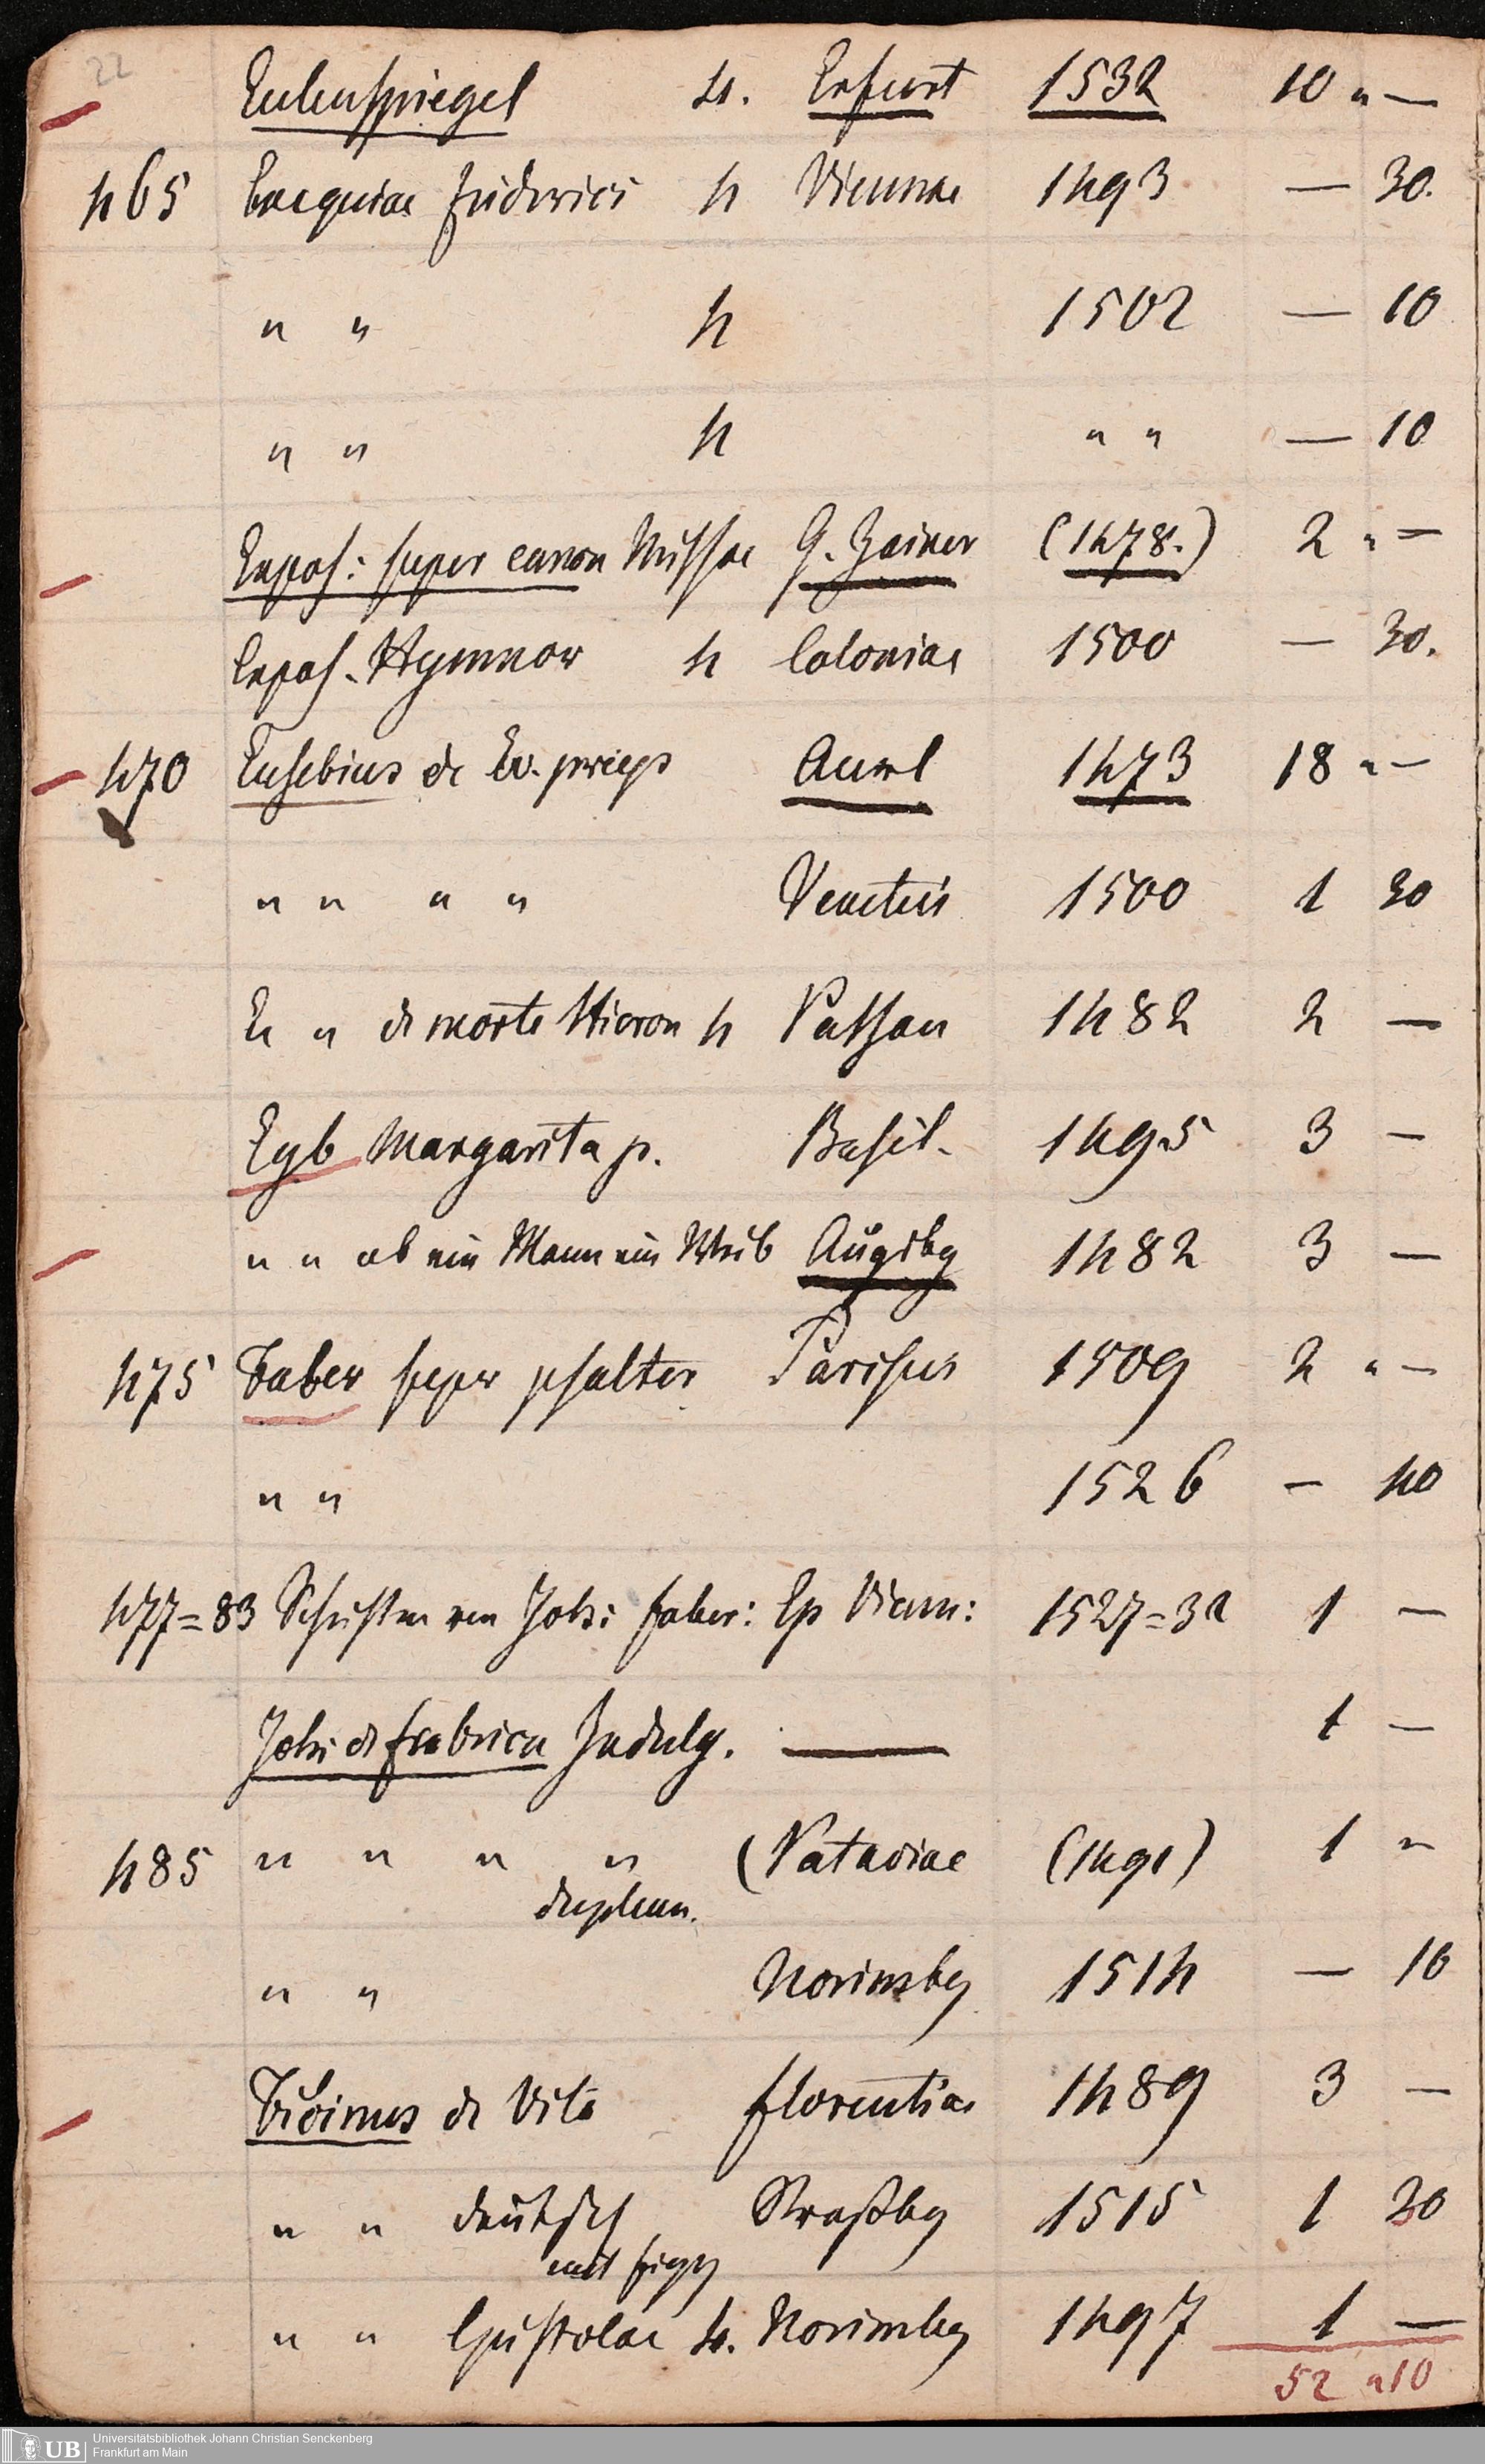 22
Eulenspiegel 4. Erfurt 1532 10 " —
465 Exequiae Ludovici 4 Viennae 1493 — 30.
" " 4 1502 — 10
" " 4 " " — 10
Expos: super canon Missae G. Zainer (1478.) 2 " —
Expos. Hymnor 4 Coloniae 1500 — 30.
470 Eusebius de Ev. praep 1473 18 " —
" " " " Venetiis 1500 1 30
E " de morte Hieron 4 Passau 1482 2 —
Eyb Margarita p. Basil. 1495 3 —
" " ob ein Mann ein Weib Augsbg 1482 3 —
475 Faber super psalter Parisiis 1509 2 " —
" " 1526 — 40
477=83 Schriften von Johs: Faber: Ep Vienn: 1527=32 1 —
Johs de Fabrica Indulg. — 1 —
485 " " " " (Pataviae (1491) 1 "
duplum.
" " Norimbg 1514 — 10
de Vita Florentiae 1489 3 —
" " deutsch Straßbg 1515 1 30
mit figg
" " Epistolae 4. Norimbg 1497 1 —
52 " 10
Universitätsbibliothek Johann Christian Senckenberg
Frankfurt am Main
UB